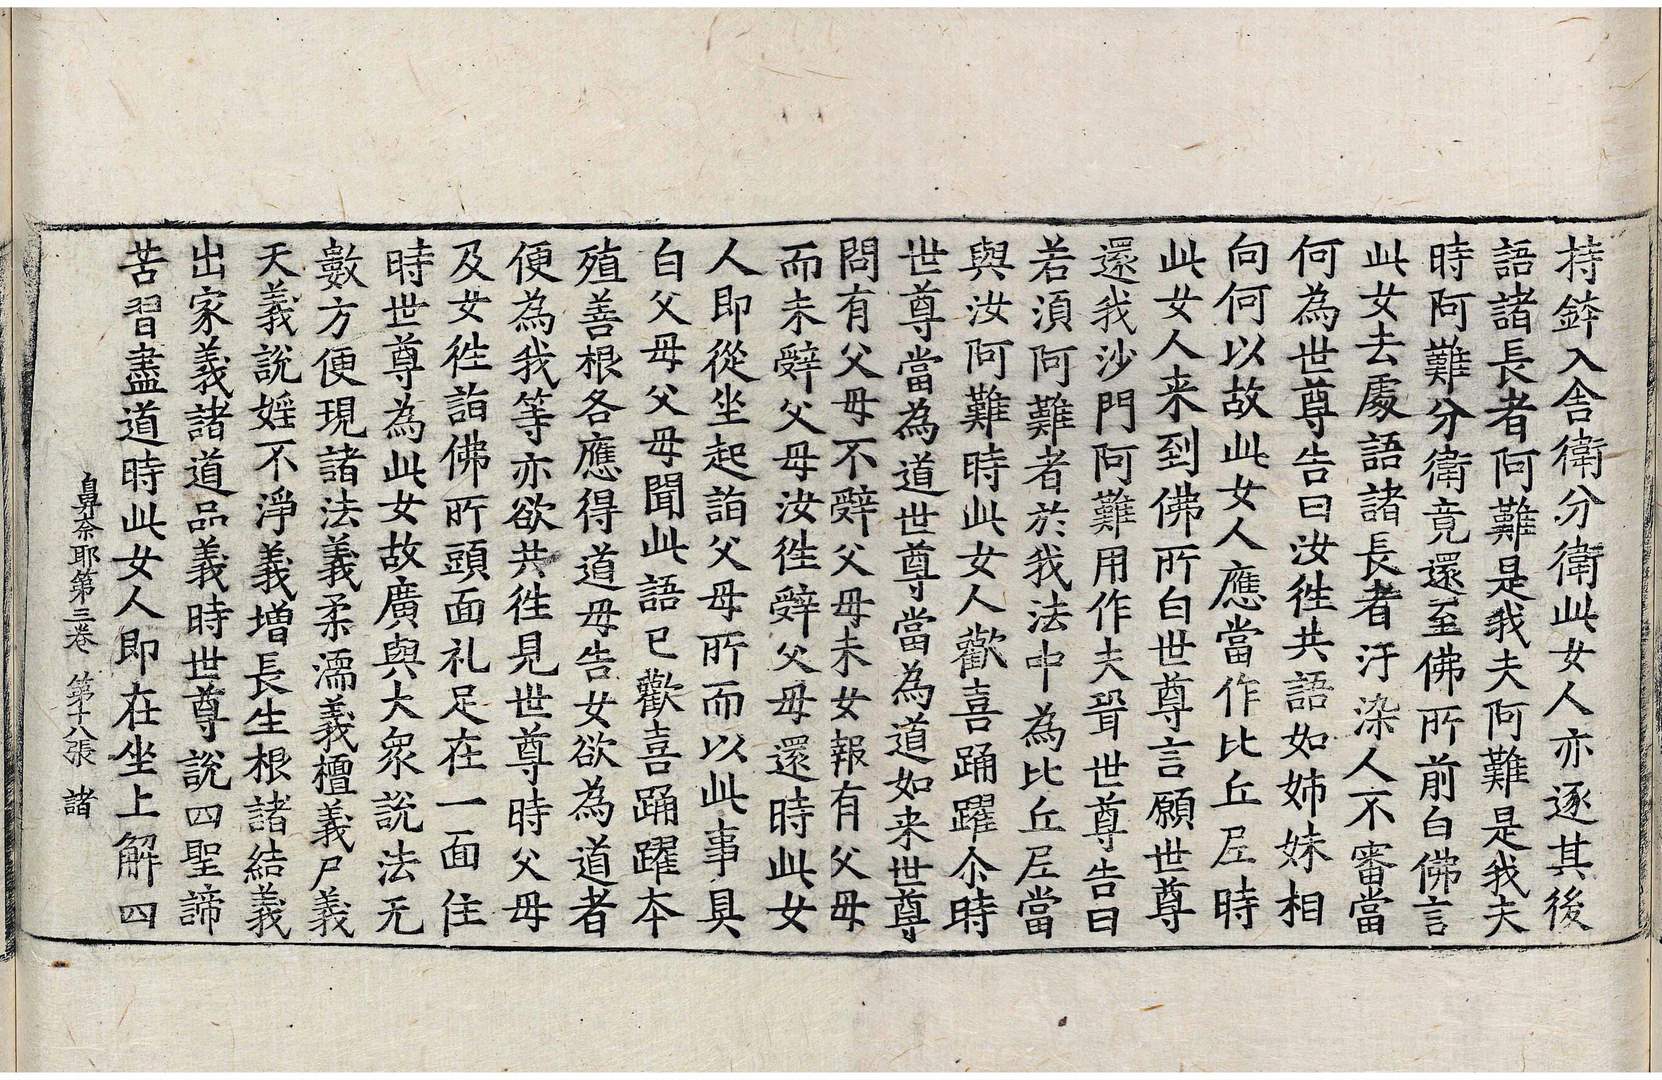 持鉢入舍衛分衛此女人亦逐其後
語諸長者阿難是我夫阿難是我夫
時阿難分衛竟還至佛所前白佛言
此女去處語諸長者汙染人不審當
何為世尊告曰汝徃共語如姉妹相
向何以故此女人應當作比丘𡰱時
此女人来到佛所白世尊言願世尊
還我沙門阿難用作夫聟世尊告曰
若湏阿難者於我法中為比丘𡰱當
與汝阿難時此女人歡喜踊躍尒時
世尊當為道世尊當為道如来世尊
問有父母不辭父母未女報有父母
而未辭父母汝徃辭父母還時此女
人即從坐起詣父母所而以此事具
白父母父母聞此語已歡喜踊躍夲
殖善根各應得道母告女欲為道者
便為我等亦欲共徃見世尊時父母
及女徃詣佛所頭面礼足在一面住
時世尊為此女故廣與大衆說法无
數方便現諸法義柔濡義檀義尸義
天義說婬不淨義增長生根諸結義
出家義諸道品義時世尊說四聖諦
苦習盡道時此女人即在坐上解四
鼻奈耶第三卷 第十八張 諸